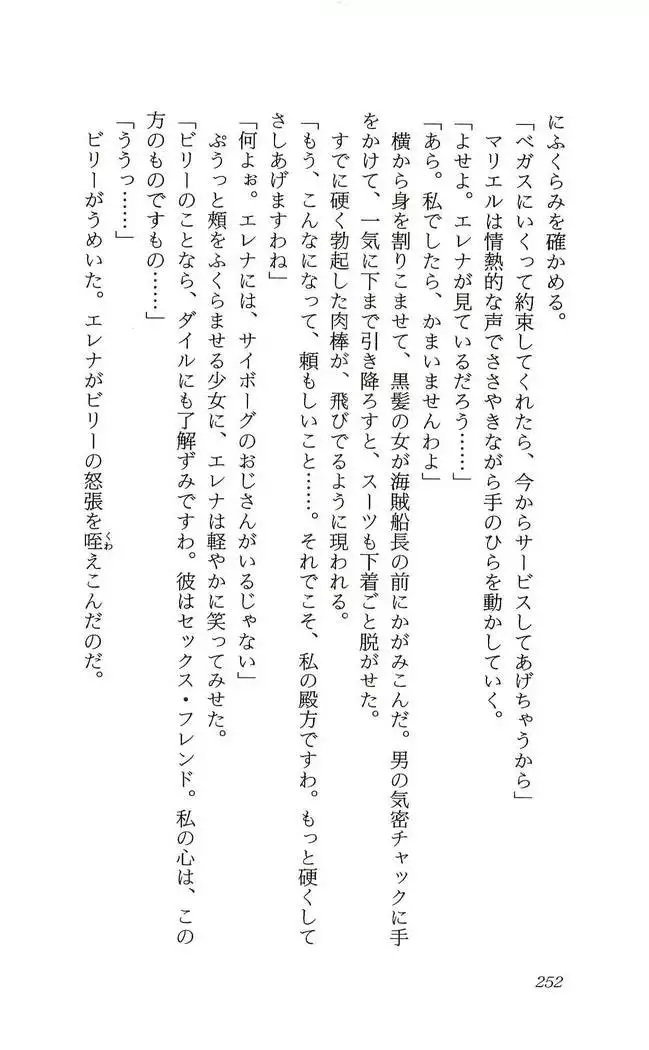 にふくらみを確かめる。
「ベガスにいくって約束してくれたら、今からサービスしてあげちゃうから」
マリエルは情熱的な声でささやきながら手のひらを動かしていく。
「よせよ。エレナが見ているだろう……」
「あら。私でしたら、かまいませんわよ」
横から身を割りこませて、黒髪の女が海賊船長の前にかがみこんだ。男の気密チャックに手
をかけて、一気に下まで引き降ろすと、スーツも下着ごと脱がせた。
すでに硬く勃起した肉棒が、飛びでるように現われる。
「もう、こんなになって、頼もしいこと……。それでこそ、私の殿方ですわ。もっと硬くして
さしあげますわね」
「何よぉ。エレナには、サイボーグのおじさんがいるじゃない」
ぷうっと頬をふくらませる少女に、エレナは軽やかに笑ってみせた。
「ビリーのことなら、ダイルにも了解ずみですわ。彼はセックス・フレンド。私の心は、この
方のものですもの……」
「ううっ……」
ビリーがうめいた。エレナがビリーの怒張を咥くわえこんだのだ。
252